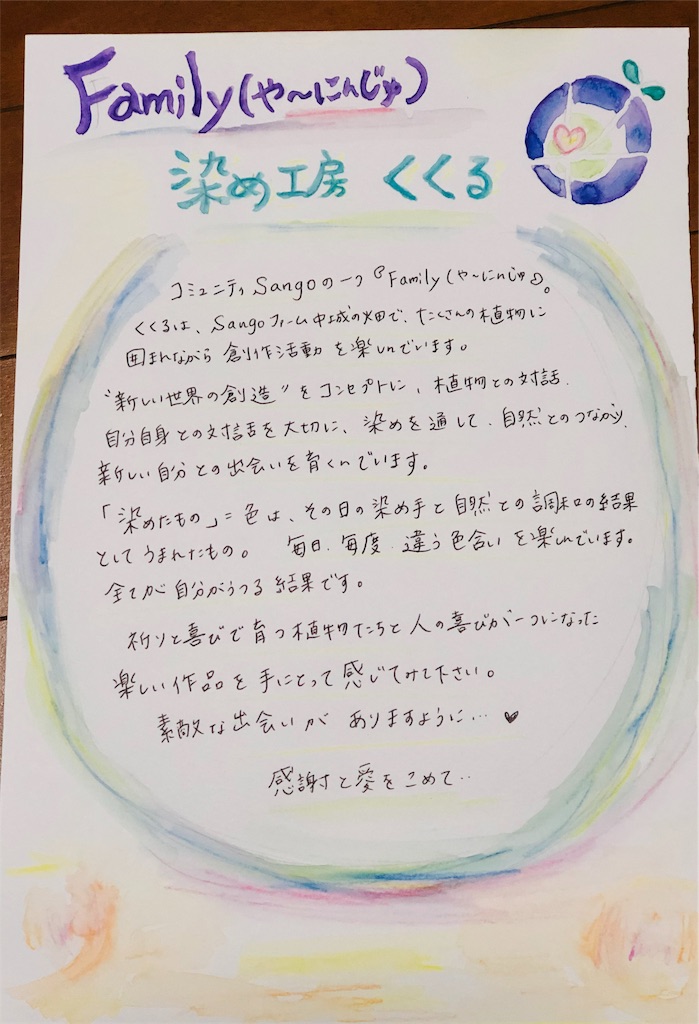 Family(や〜にんじゅ)
染め工房 くくる
コミュニティ Sangoの一つ『Family(や〜にんじゅ)』。
くくるは、Sangoファーム中城の畑で、たくさんの植物に
囲まれながら 創作活動 を楽しんでいます。
“新しい世界の創造” を コンセプトに、植物との対話、
自分自身との対話を大切に、染めを通して、自然とのつながり、
新しい自分との出会いを育くんでいます。
「染めたもの」=色は、その日の染め手と自然との調和の結果
としてうまれたもの。 毎日、毎度、違う色合いを楽しんでいます。
全てが自分がうつる結果です。
祈りと喜びで育つ植物たちと人の喜びが一つになった
楽しい作品を手にとって感じてみて下さい。
素敵な出会いが ありますように… ♥
感謝と愛をこめて‥